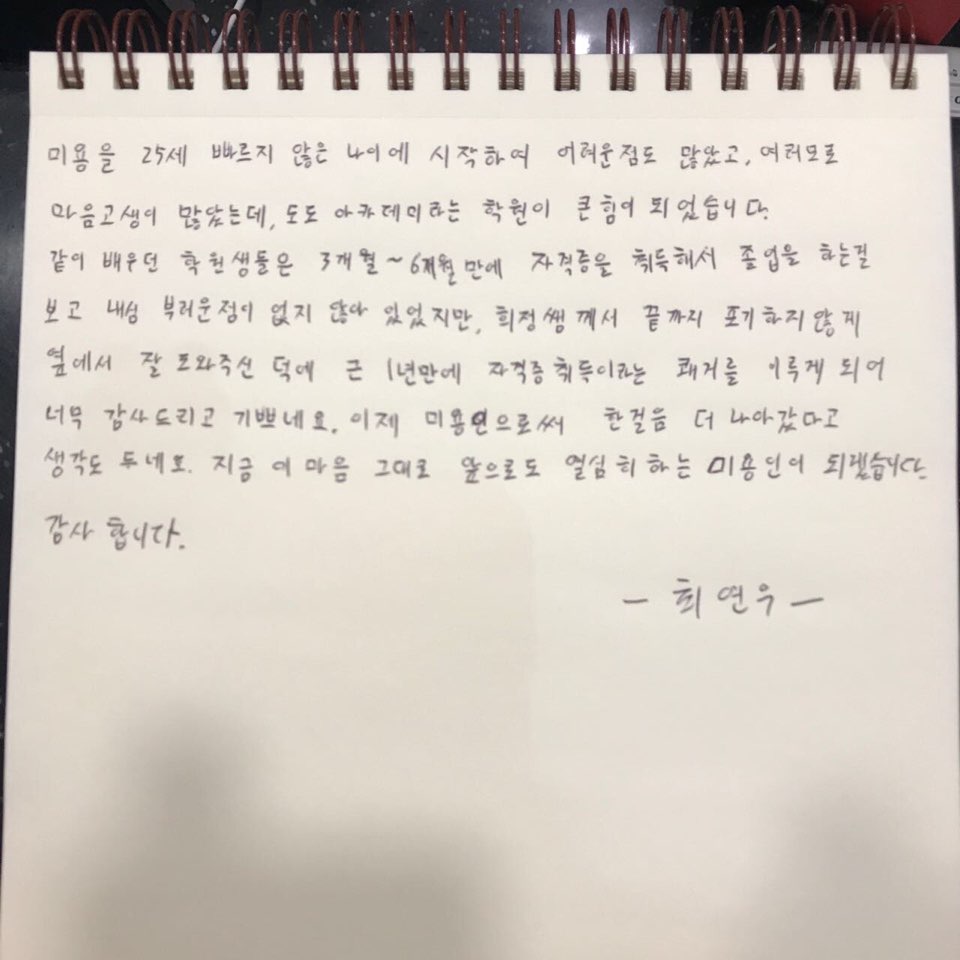 미용을 25세 빠르지 않은 나이에 시작하여 어려운점도 많았고, 여러모로
마음고생이 많았는데, 도도 아카데미라는 학원이 큰 힘이 되었습니다.
같이 배우던 학원생들은 3개월~6개월만에 자격증을 취득해서 졸업을 하는걸
보고 내심 부러운점이 없지 않아 있었지만, 희정쌤께서 끝까지 포기하지않게
옆에서 잘 도와주신 덕에 근 1년만에 자격증취득이라는 쾌거를 이루게 되어
너무 감사드리고 기쁘네요. 이제 미용인으로써 한걸음 더 나아갔다고
생각도 두네요. 지금 이 마음 그대로 앞으로도 열심히하는 미용인이 되겠습니다.
감사 합니다.
- 최연우 -